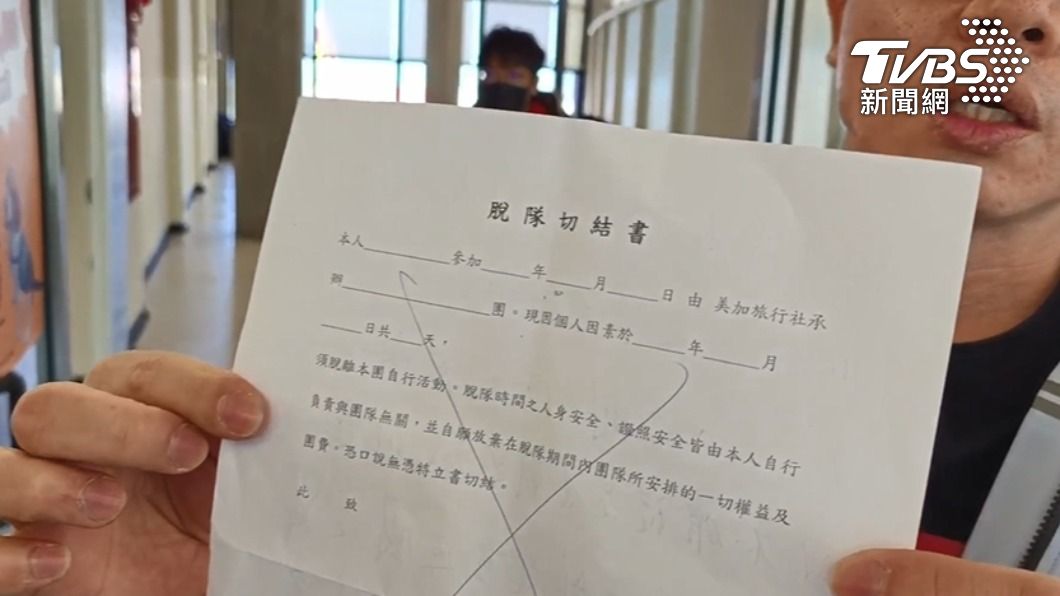 TVBS
新聞網
脫隊切結書
本人________參加_____年_____月_____日 由 美加旅行社承
辦______________團。現因個人因素於_____年_____月
____日共___天，
須脫離本團自行活動。脫隊時間之人身安全、證照安全皆由本人自行
負責與團隊無關，並自願放棄在脫隊期間內團隊所安排的一切權益及
團費。恐口說無憑特立書切結。
此 致